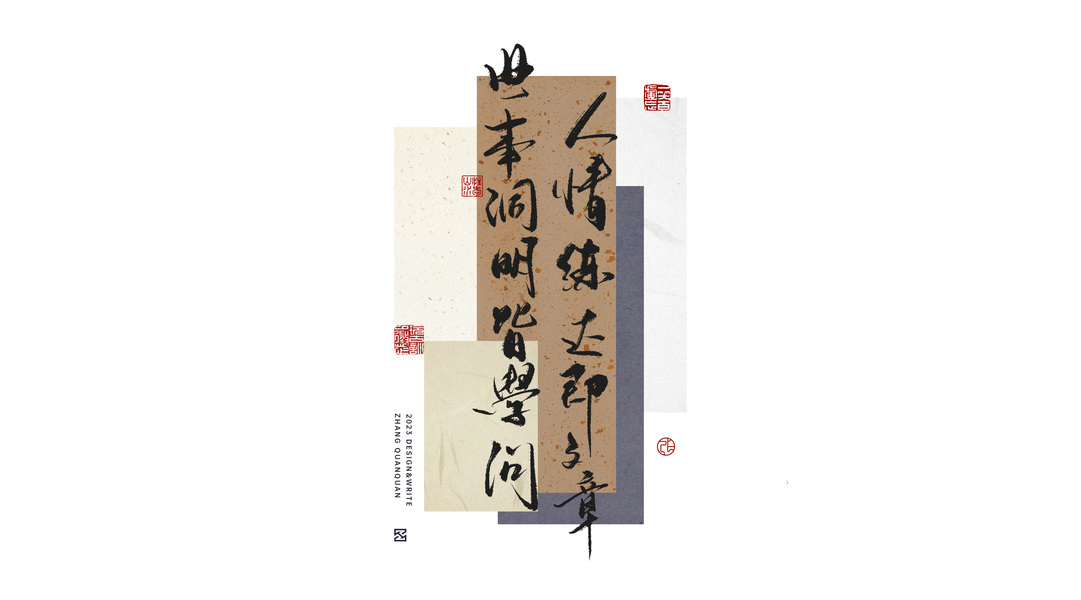 世事洞明皆學问
人情练达即文章
2023 DESIGN&WRITE
ZHANG QUANQUAN